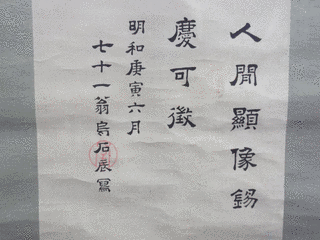 人間顯像錫
慶可徴
明和庚寅六月
七十一翁烏石辰寫